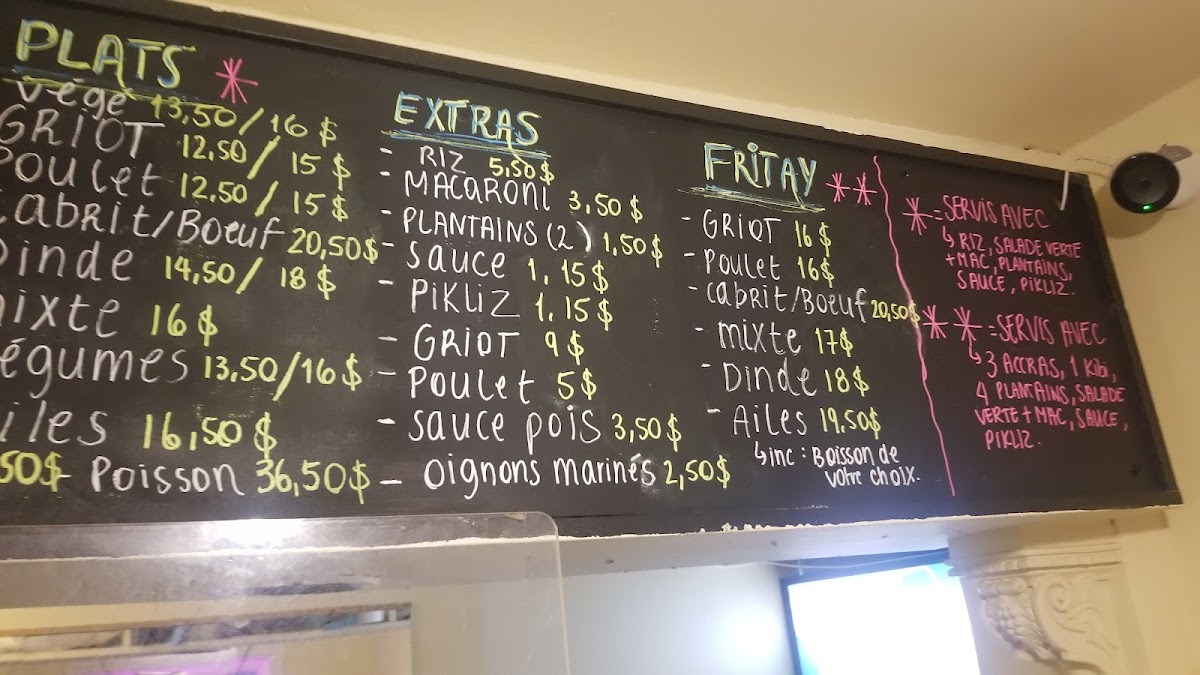 PLATS *
végé 13,50/16 $
GRIOT 12,50/15 $
Poulet 12,50/15 $
Cabrit/Boeuf 20,50$
Dinde 14,50/18 $
mixte 16 $
égumes 13,50/16 $
iles 16,50 $
50$ - Poisson 36,50$
EXTRAS
- RIZ 5,50$
- MACARONI 3,50$
- PLANTAINS (2) 1,50$
- sauce 1,15$
- PiKLiZ 1,15$
- GRIOT 9$
- Poulet 5$
- sauce pois 3,50$
- oignons marinés 2,50$
FRITAY **
- GRIOT 16$
- Poulet 16$
- cabrit/Boeuf 20,50$
- mixte 17$
- Dinde 18$
- Ailes 19,50$
↳ inc : Boisson de
votre choix.
* = SERVIS AVEC
↳ RIZ, SALADE VERTE
+ MAC, PLANTAINS,
SAUCE, PIKLIZ.
** = SERVIS AVEC
↳ 3 ACCRAS, 1 KiBi,
4 PLANTAINS, SALADE
VERTE + MAC, SAUCE,
PIKLIZ.